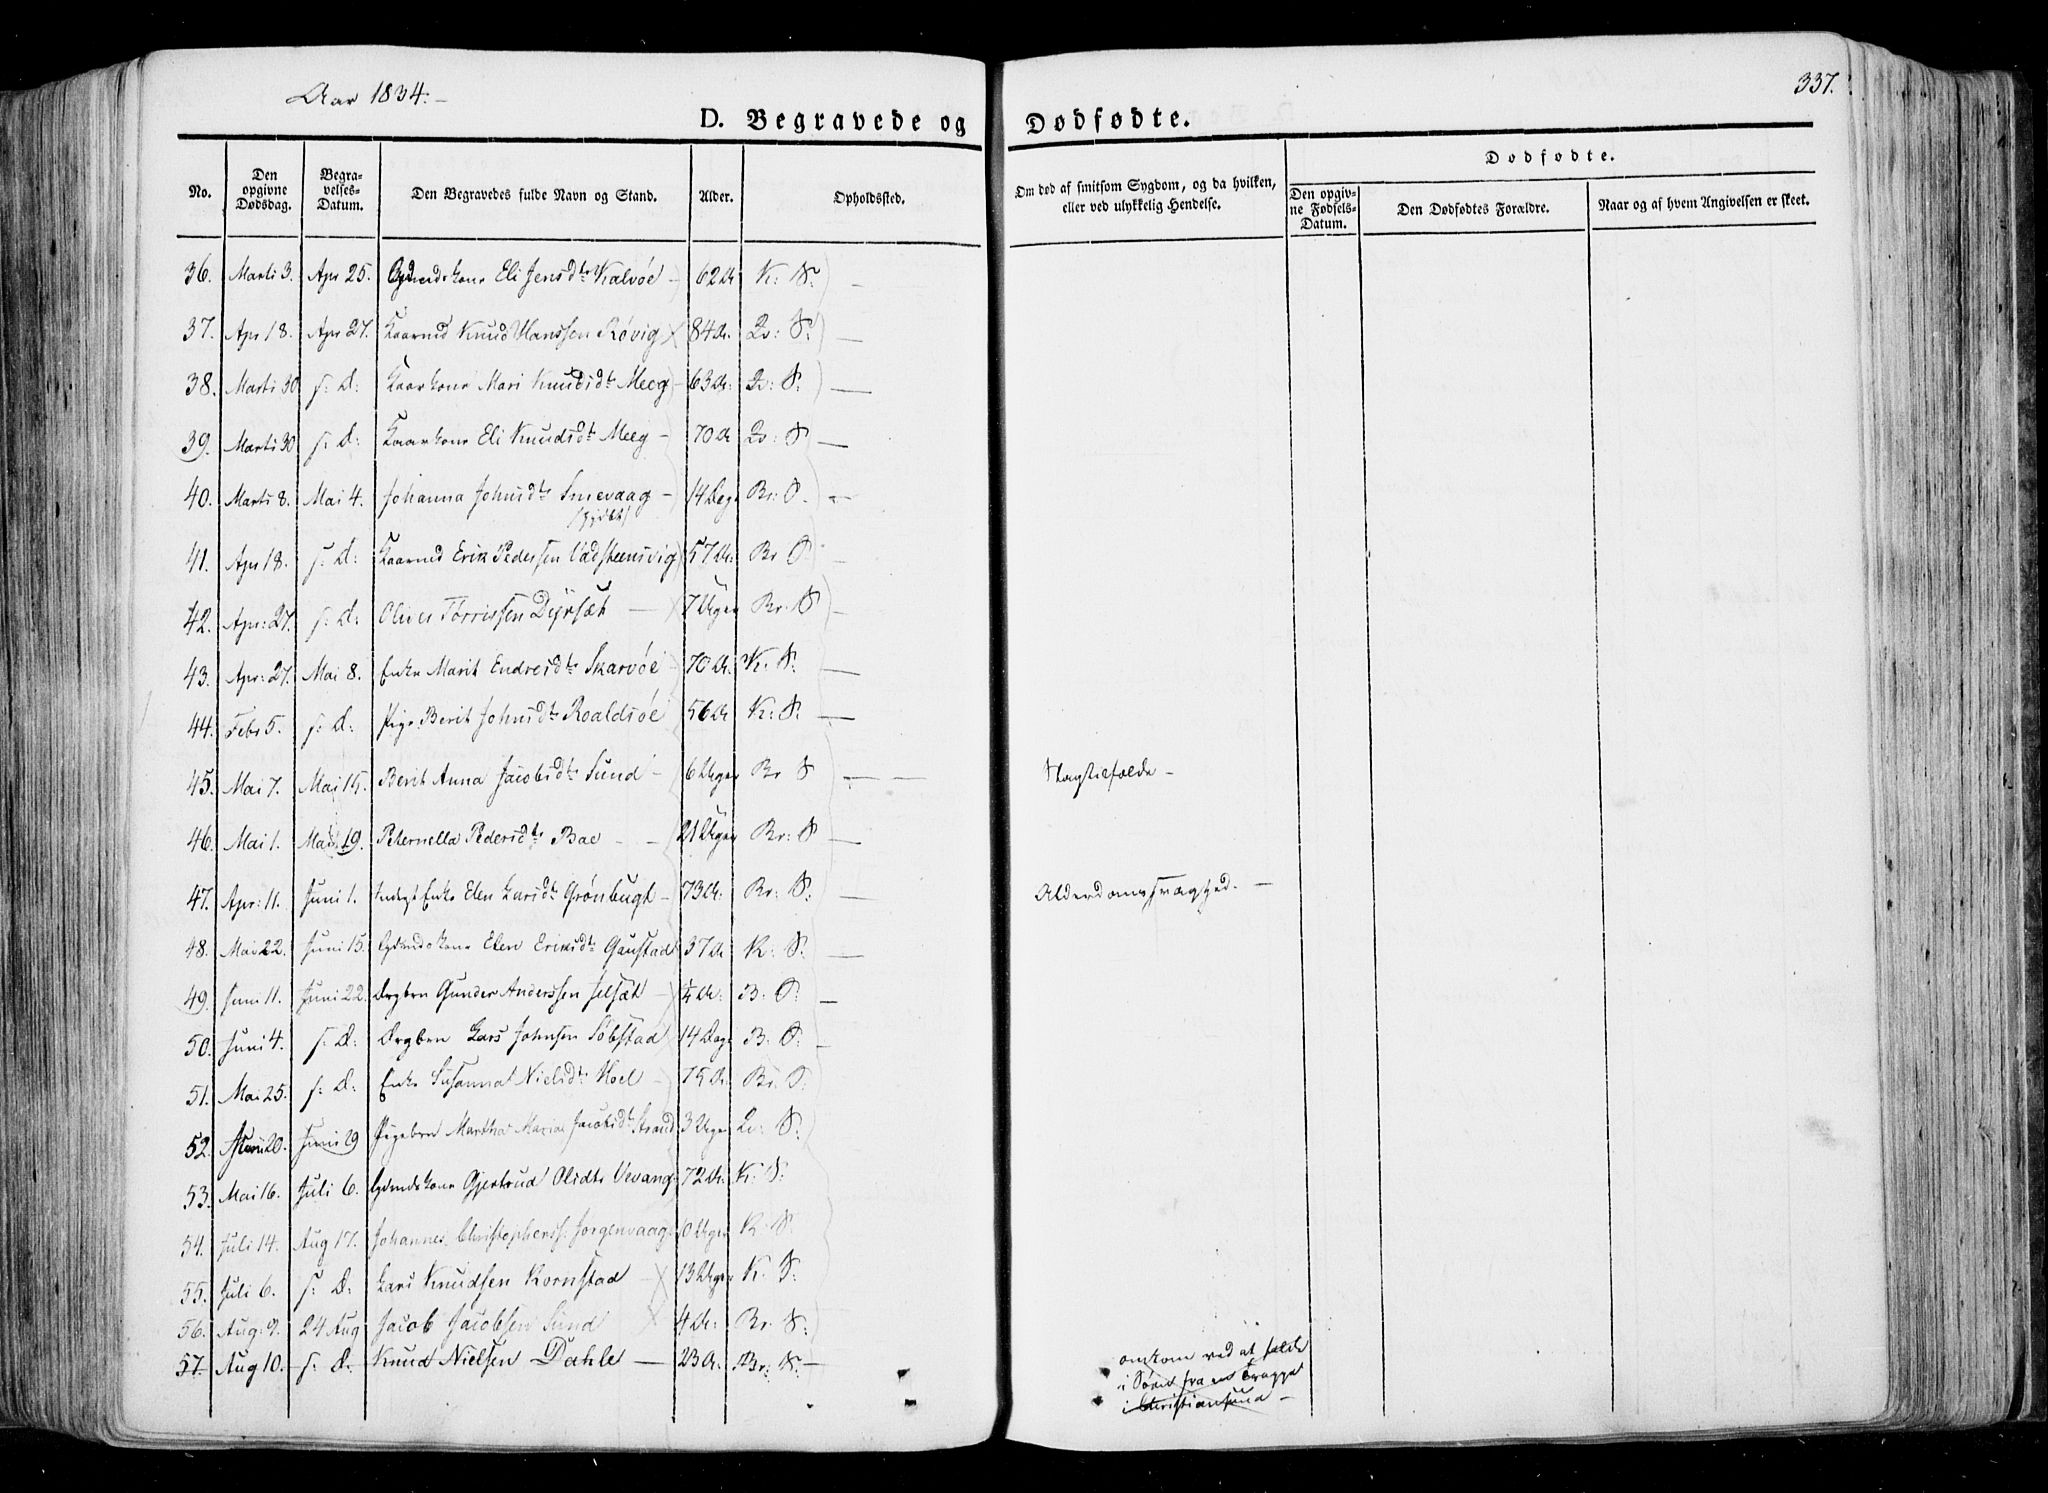 Aar 1834.
337.
D. Begravede og Dødfødte.
No. Den opgivne Dødsdag. Begravelses-Datum. Den Begravedes fulde Navn og Stand. Alder. Opholdssted. Om død af smitsom Sygdom, og da hvilken, eller ved ulykkelig Hendelse. Dødfødte. Den opgivne Fødsels-Datum. Den Dødfødtes Forældre. Naar og af hvem Angivelsen er skeet.
36. Marti 3. Apr 25. Eli Jensdtr Kalvøe 62 K: S:
37. Apr 18. Apr 27. Kaarmd Knud Hanssen Røvig 84 Qv: S:
38. Marti 30 s: D: Kaarkone Mari Knudsdtr Meeg 63 Qv: S:
39. Marti 30 s: D: Kaarkone Eli Knudsdtr Meeg 70 Qv: S
40. Marti 8. Mai 4. Johanna Johnsdtr Smevaag 14 Dage Br: S.
41. Apr 18. s: D: Kaarmd Erik Pedersen Vadsteensvig 57 Br S
42. Apr: 27. s: D: Oliver Torrissen Dyrsæt 7 Uger Br. S
43. Apr: 27. Mai 8. Enke Marit Endresdtr Skarvøe 70 K. S.
44. Febr 5. s: D: Pige Berit Johnsdtr Roaldsøe 56 K: S.
45. Mai 7. Mai 15. Berit Anna Jacobsdtr Sund 6 Uger Br S Slagtilfælde
46. Mai 1. Mai 19. Peternella Pedersdtr Bae 21 Uger Br: S
47. Apr: 11. Juni 1. Indlgt Enke Elen Larsdtr Grønbugt 73 Br: S: Alderdomssvaghed.
48. Mai 22. Juni 15. Gdmdskone Elen Eriksdtr Gaustad 37 K: S:
49. Juni 11. Juni 22. Drgbrn Gunder Anderssen 1/4 B: S:
50. Juni 4. s: D: Drgbrn Lars Johnsen Sobstad 14 Dage B: S:
51. Mai 25. s: D: Enke Susanna Nielsdtr Hoel 75 Br. S:
52. Juni 20. Juni 29 Pigebrn Martha Maria Jacobsdtr Strand 3 Uger Qv: S:
53. Mai 16. Juli 6. Gdmdskone Gjertrud Olsdtr Vevang 72 K: S:
54. Juli 14. Aug 17. Johannes Christophers. Jørgenvaag Uger K. S.
55. Juli 6. s: D: Lars Knudsen Kornstad 13 Uger K. S:
56. Aug: 9. 24 Aug Jacob Jacobsen Sund 4 Br. S:
57. Aug 10. s: D. Knud Nielsen Dahle 23 Br: S: omkom ved at falde
i Søen fra en Brygge
i Christiansund